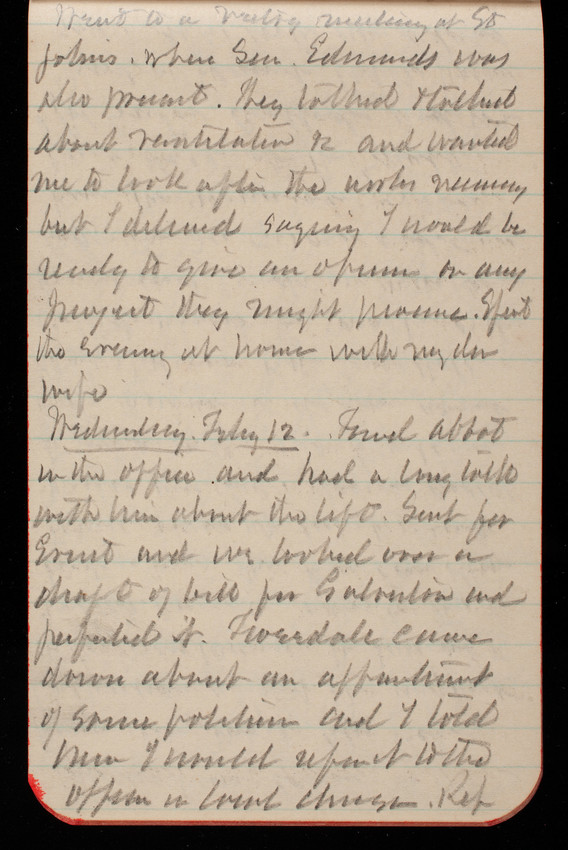 Went to a vestry meeting at St
Johns. where Sen. Edmunds was
also present. They talked & talked
about ventilation &c and wanted
me to look after the works necessary
but I declined saying I would be
ready to give an opinion on any
project they might propose. Spent
the evening at home with my dear
wife
Wednesday. Feby 12. Found Abbot
in the office and had a long talk
with him about the lift. Sent for
Ernst and we looked over a
draft of bill for Galveston and
perfected it. Tweedale came
down about an appointment
of some position and I told
him I would report to the
officer in local charge. Rep